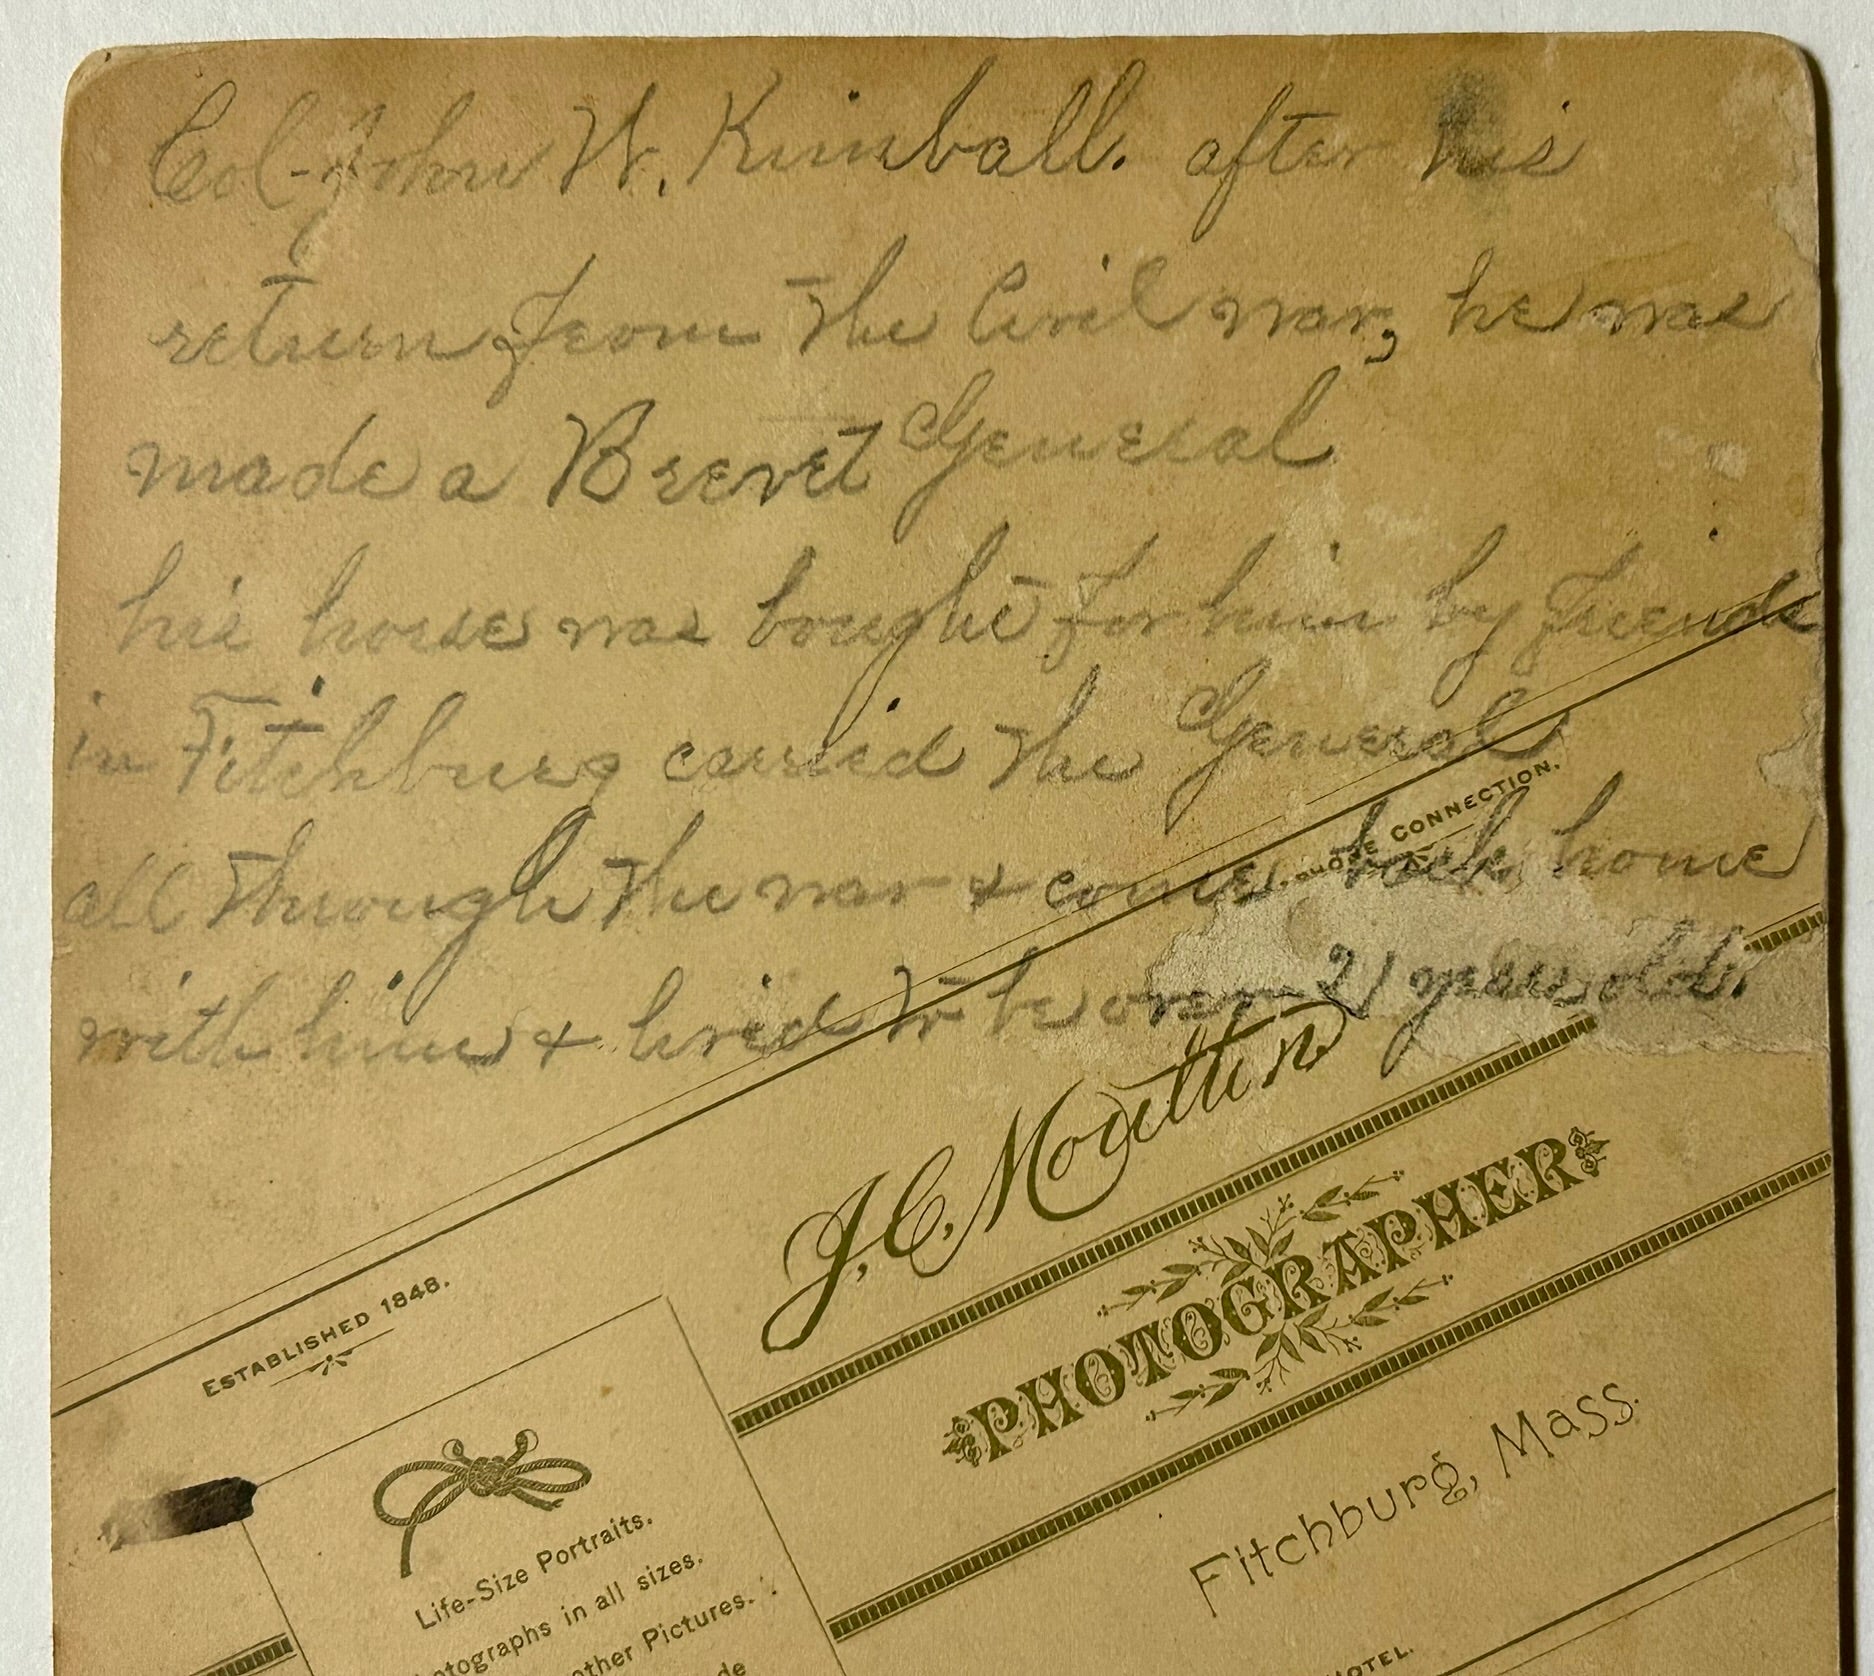 Col. John W. Kimball. after his
return from the Civil war, he was
made a Brevet General
his horse was bought for him by friends
in Fitchburg carried the General
all through the war & come back home
with him & livid to be over 21 years old.
CONNECTION.
J. C. Moulton
PHOTOGRAPHER
Fitchburg, Mass.
ESTABLISHED 1848.
Life-Size Portraits.
otographs in all sizes.
other Pictures.
de
HOTEL.